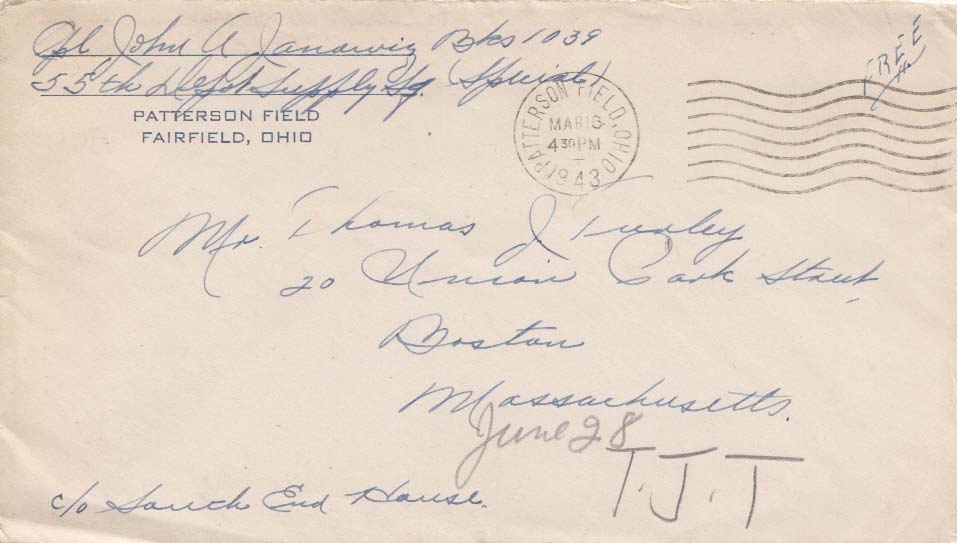 Cpl John A Janowiz Bks 1039
55th Depot Supply Sq. (Special)
PATTERSON FIELD
FAIRFIELD, OHIO
PATTERSON FIELD, OHIO
MAR 16
4 30 PM
1943
FREE
Mr. Thomas J.
20 Union Park Street,
Boston
Massachusetts.
June 28
T. J. T
c/o South End House.